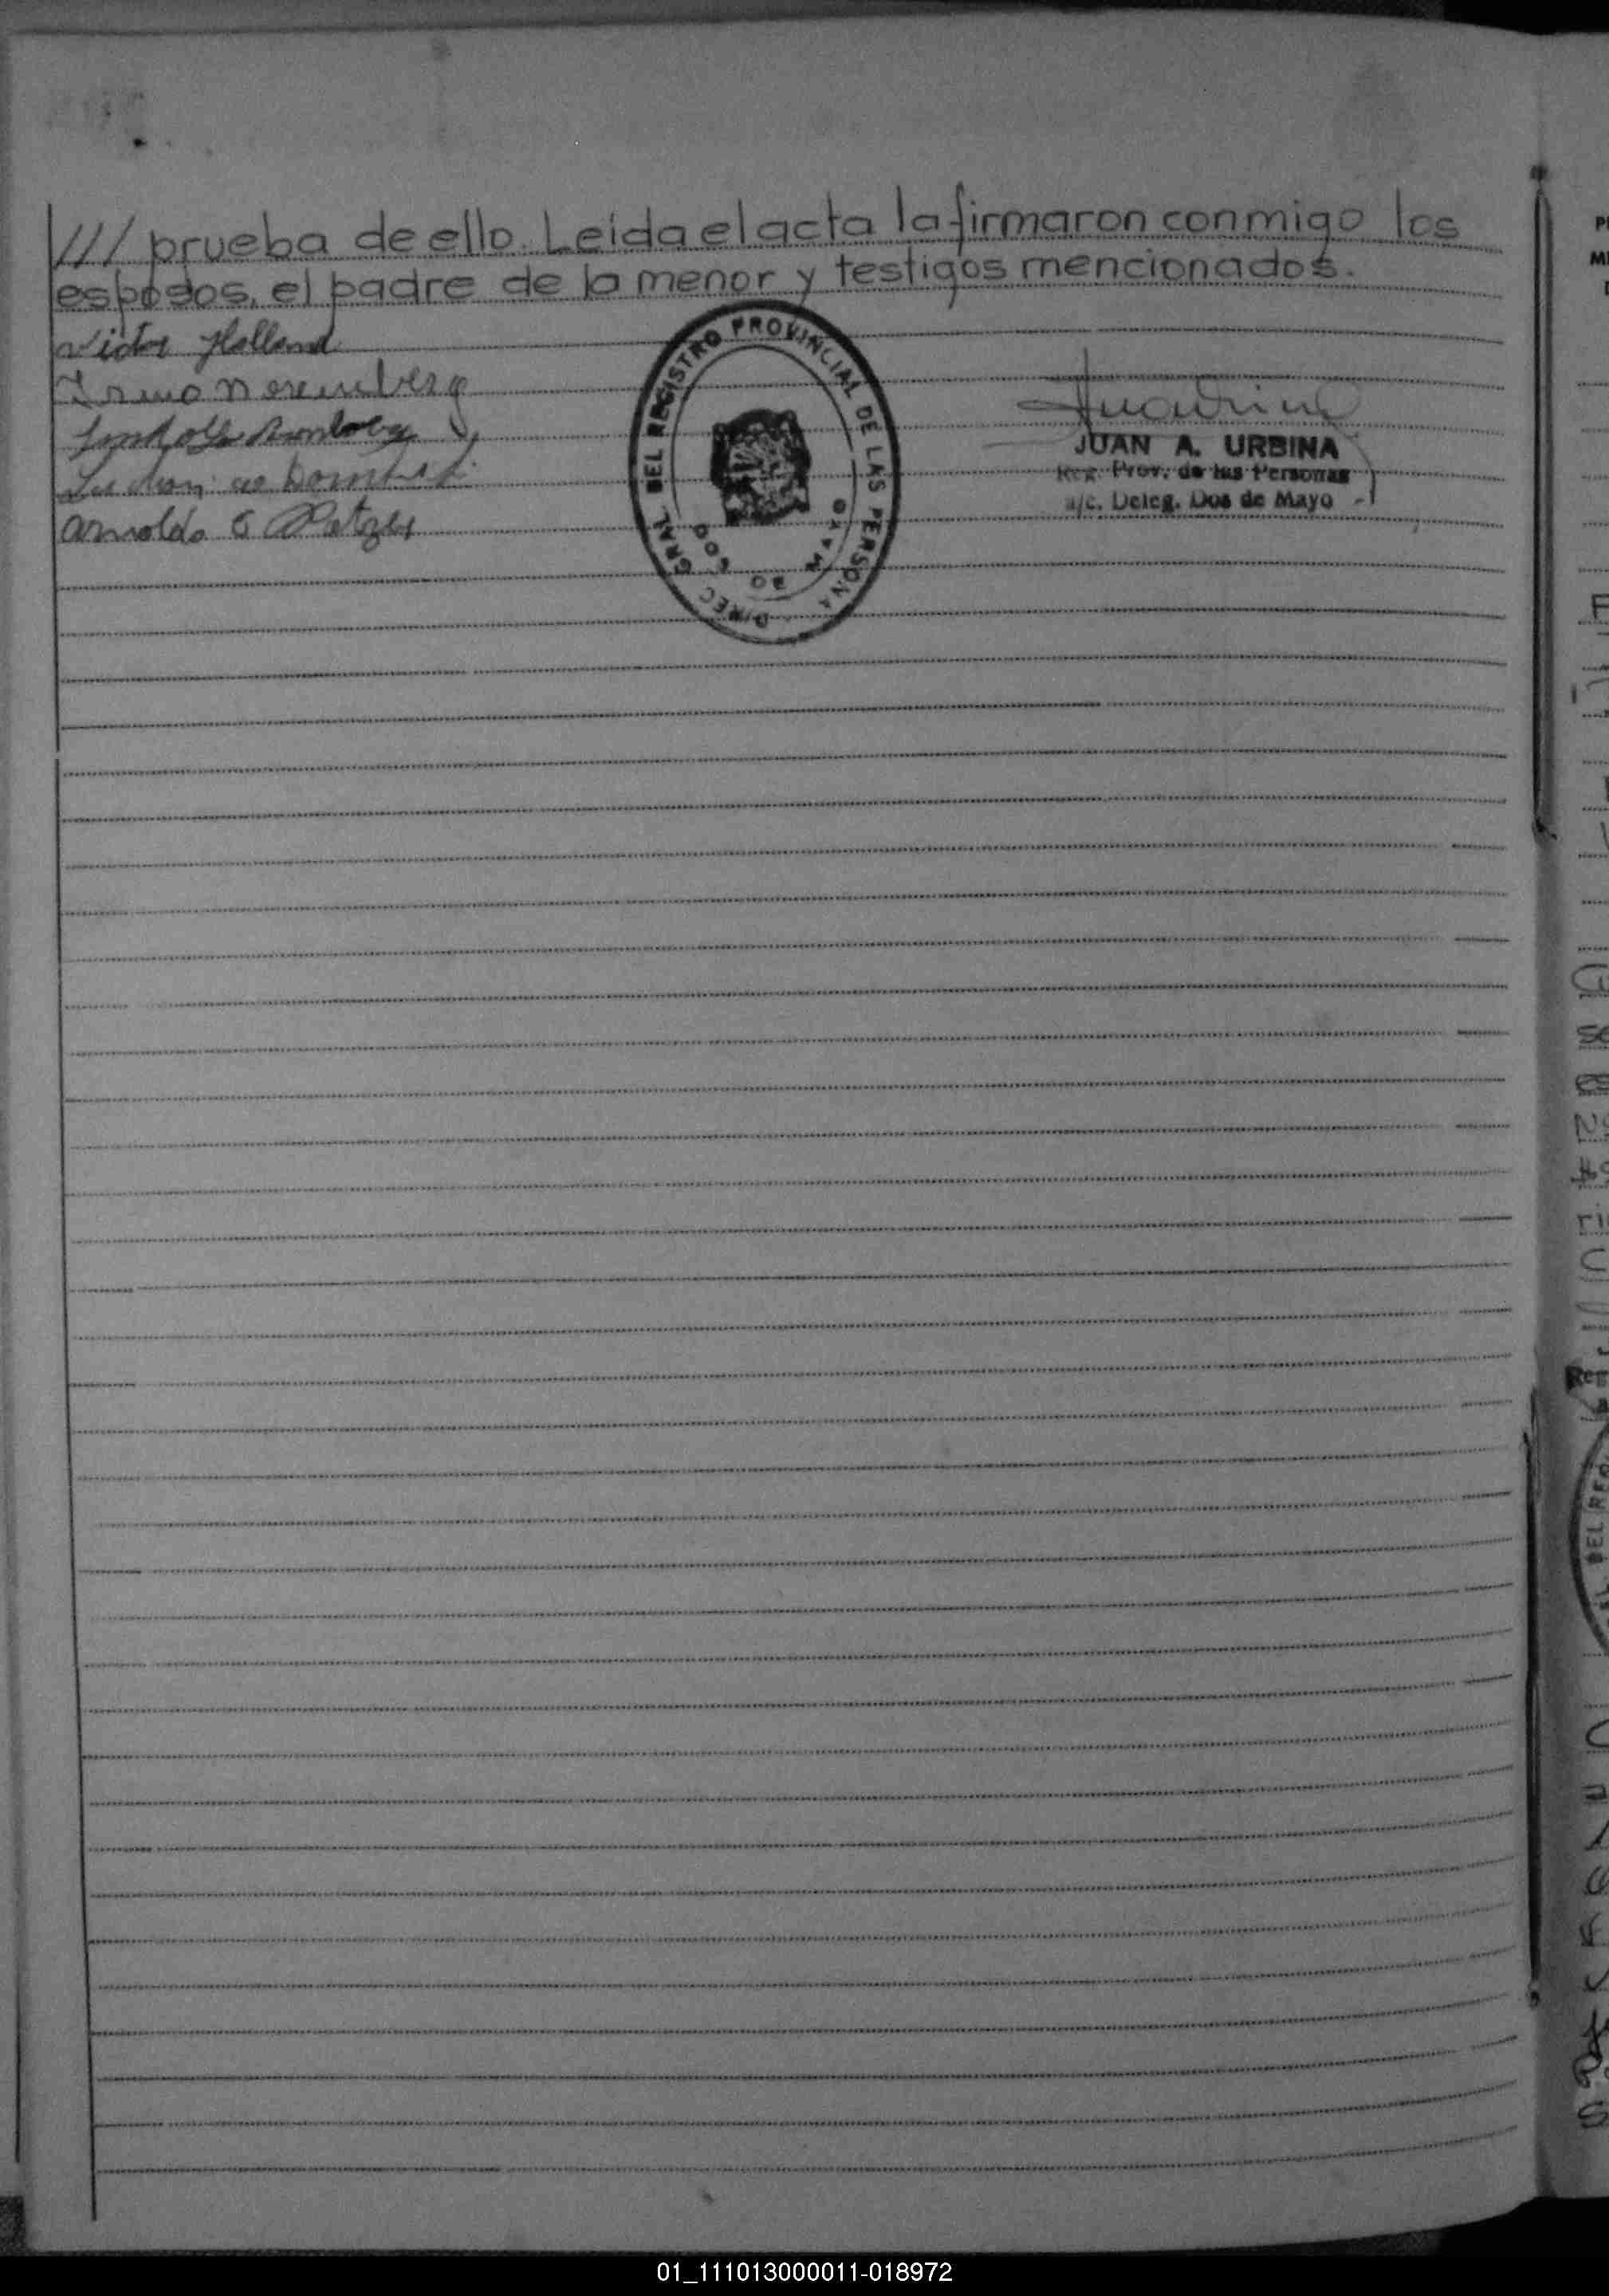 /// prueba de ello. Leida el acta la firmaron conmigo los
esposos, el padre de la menor y testigos mencionados.
Victor Holland
Irma Noremberg
Arnoldo
DIREC GRAL DEL REGISTRO PROVINCIAL DE LAS PERSONA
DOS DE MAYO
JUAN A. URBINA
Reg. Prov. de las Personas
a/c. Deleg. Dos de Mayo
01_111013000011-018972